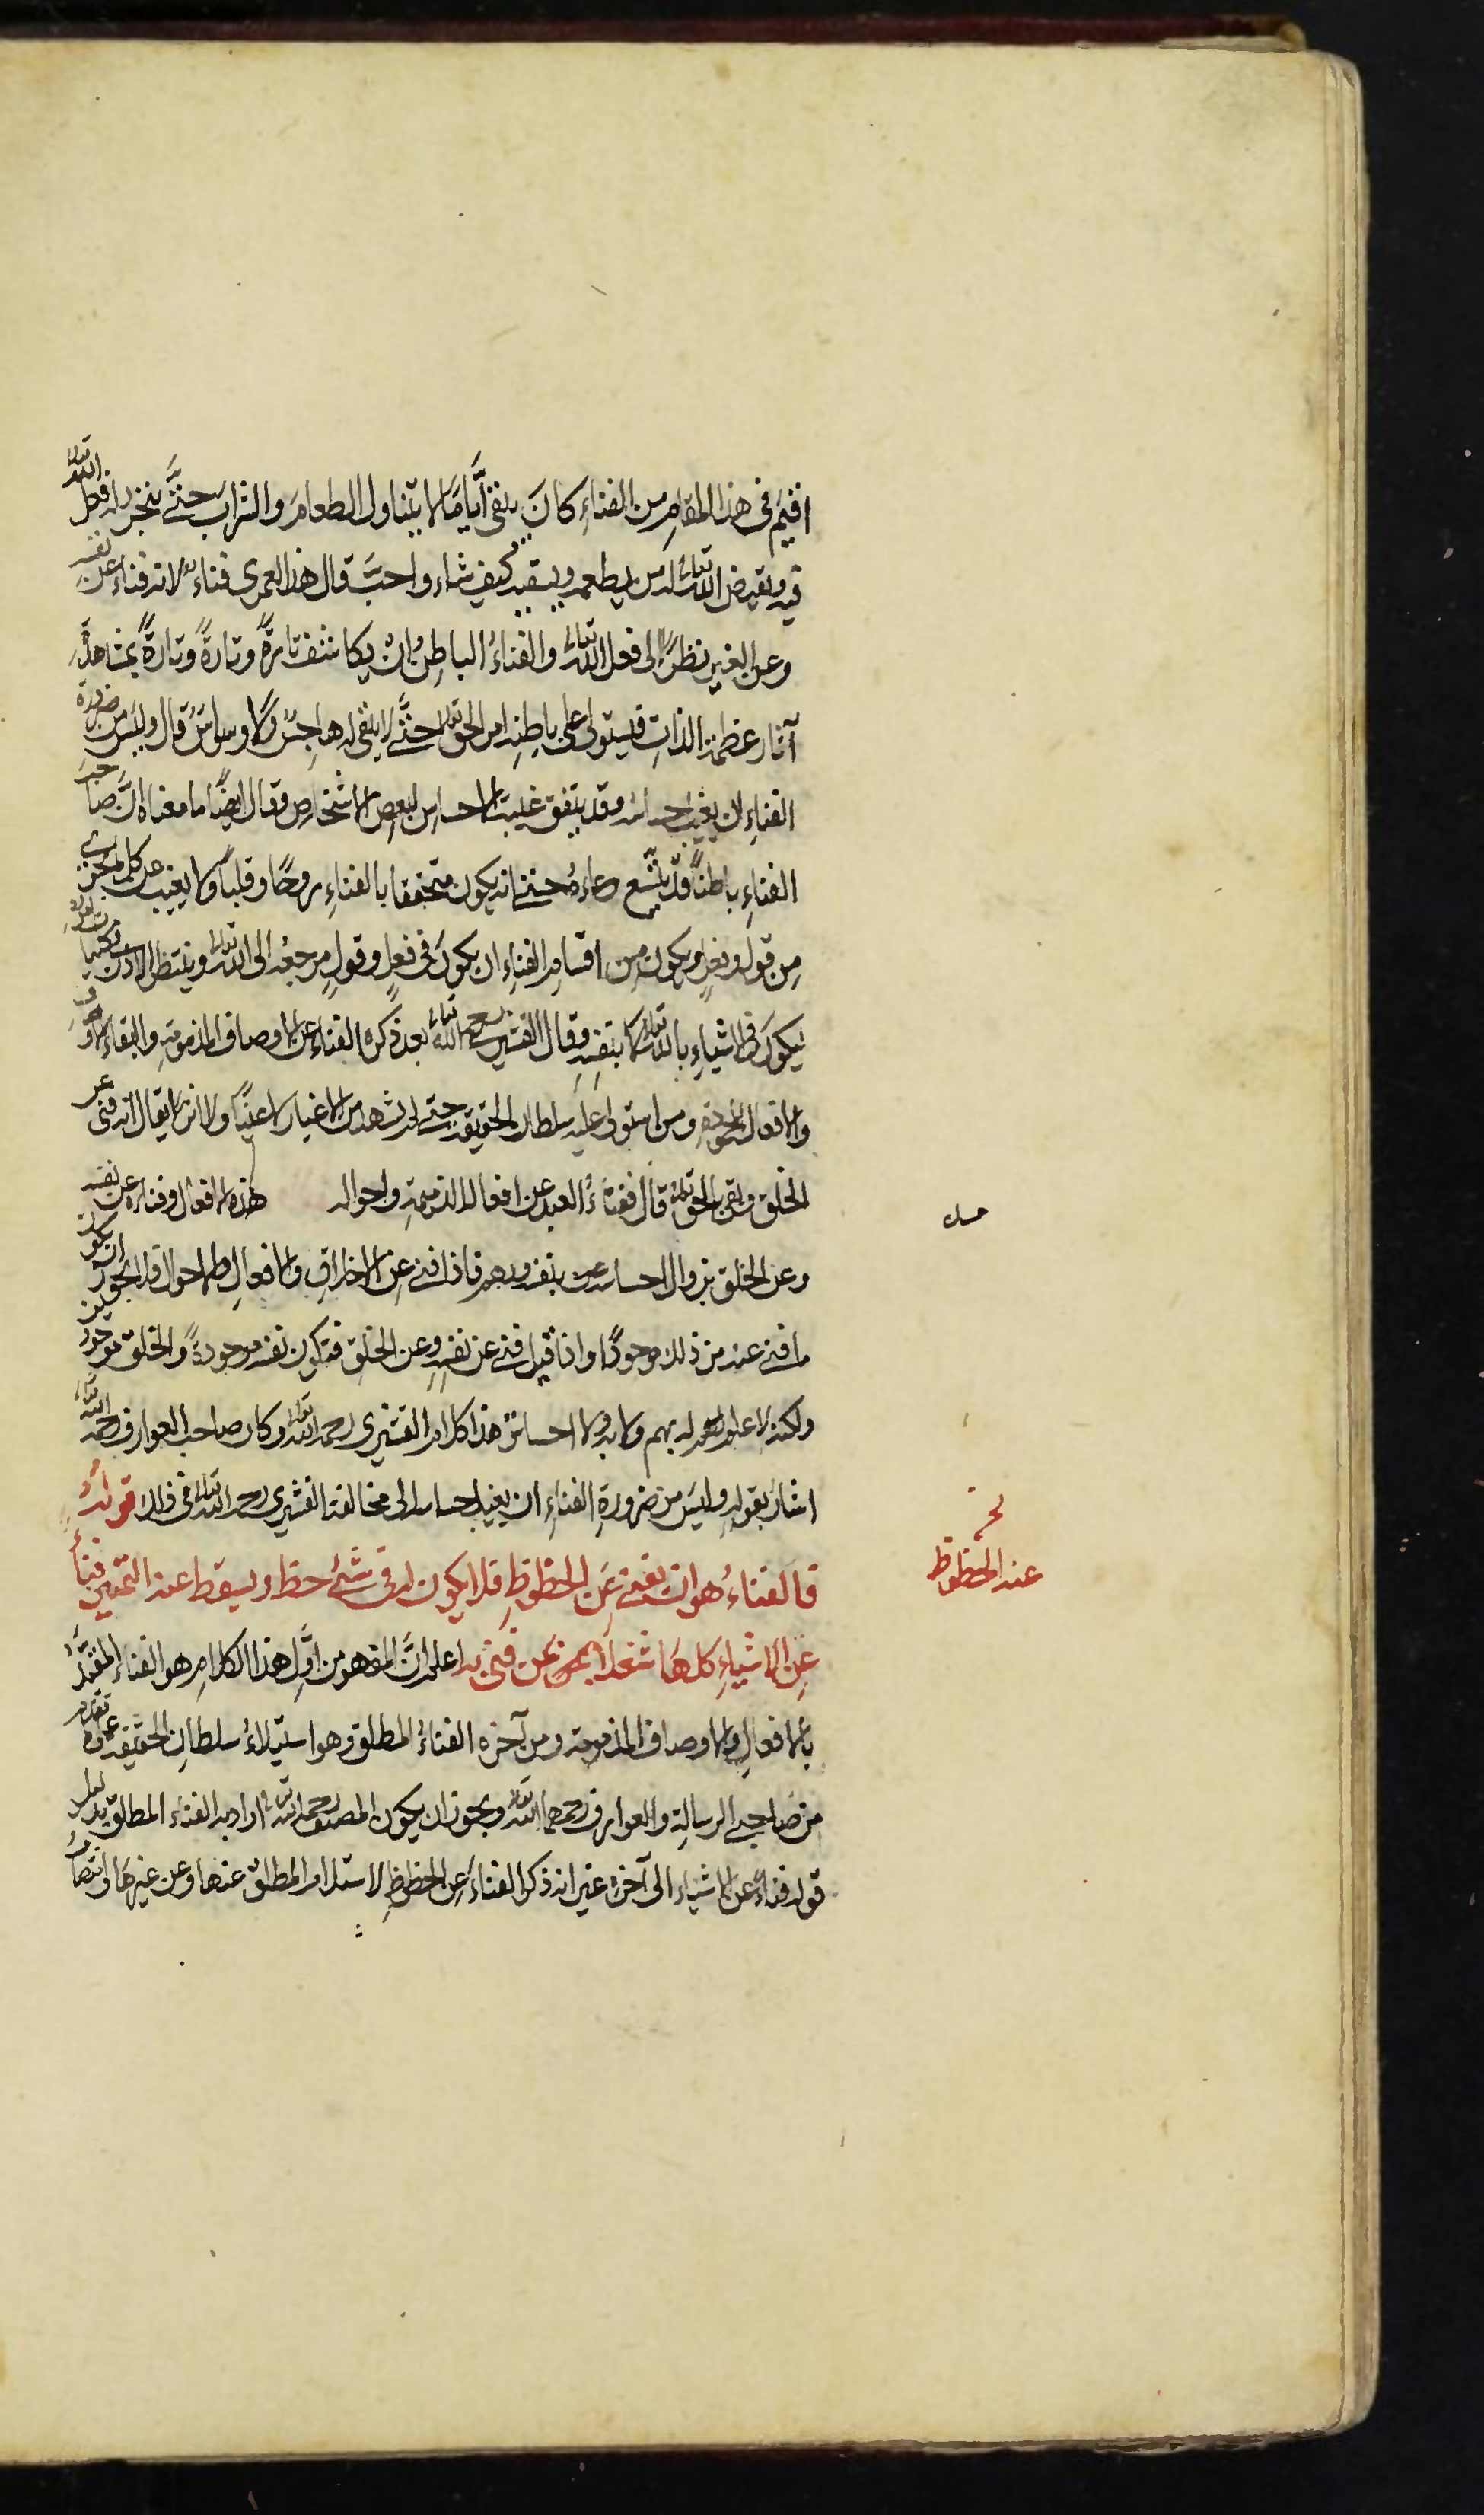 اقيم فى هذا المقام من الفناء كان يبقى أيامًا لا يتناول الطعام والشراب حتّى يتجرد له فعل الله تعالى
فيه ويقيض الله تعالى له من يطعمه ويسقيه كيف شاء واحبّ قال هذا لعمرى فناءٌ لانه فناء عن نفسه
وعن الغير نظرًا الى فعل الله تعالى والفناءُ الباطنُ ان يكاشف تارةً وتارةً وتارةً بمشاهدة
آثار عظمة الذات فيستولى على باطنه امر الحق تعالى حتّى لا يبقى له هاجسٌ ولا وسواسٌ قال وليس من ضرورة
الفناءِ ان يغيب احساسه وقد يتفق غيبة الاحساس لبعض الاشخاص وقال ايضًا ما معناه انّ صاحب
الفناءِ باطنًا قد يتّسع وعاءه حتى انه يكون متحققا بالفناءِ روحًا وقلبًا ولا يغيب عن كل ما يجرى
من قول وفعل ويكون من اقسام الفناءِ ان يكون فى فعلٍ وقولٍ مرجعه الى الله تعالى وينتظر الاذن فى كليات اموره
ليكون فى الاشياءِ بالله تعالى لا بنفسه وقال القشيرى رحمه الله تعالى بعد ذكره الفناء عن الاوصاف المذمومة والبقاء بالاوصاف
والافعال المحمودة ومن استولى عليه سلطان الحقيقة حتى لم يشهد من الاغيار لا عينًا ولا اثرًا يقال انه فنى عن
الخلق وبقى بالحق تعالى قال ففناءُ العبد عن افعاله الذميمة واحواله هذه الافعال وفناؤه عن نفسه
وعن الخلق بزوال احساسه عن نفسه وبهم فاذا فنى عن الاخلاق والافعال والاحوال فلا يجوز ان يكون
ما فنى عنه من ذلك موجودًا واذا قيل فنى عن نفسه وعن الخلق فتكون نفسه موجودةً والخلق موجودين
ولكنه لا علم له بهم ولا به ولا احساسَ هذا كلام القشيرى رحمه الله تعالى وكان صاحب العوارف رحمه الله تعالى
اشار بقوله وليس من ضرورة الفناءِ ان يغيب احساسه الى مخالفة القشيرى رحمه الله تعالى فى ذلك قوله
فالفناءُ هو ان يفنى عن الحظوظِ فلا يكون له فى شئ حظ ويسقط عنه التمييز فناءً
عن الاشياءِ كلها شغلًا بمن فنى به اعلم انّ المفهوم من اوّل هذا الكلام هو الفناء المقيّد
بالافعالِ والاوصاف المذمومة ومن آخره الفناءُ المطلق وهو استيلاءُ سلطان الحقيقة على ما تقدم
من صاحبى الرسالة والعوارف رحمهما الله تعالى ويجوز ان يكون المصنف رحمه الله تعالى اراد به الفناء المطلق بدليل
قوله فناءً عن الاشياء الى آخره غير انه ذكر الفناءَ عن الحظوظِ لاستلزام المطلق عنها وعن غيرها وانتصابُ
عنه الحظوظ